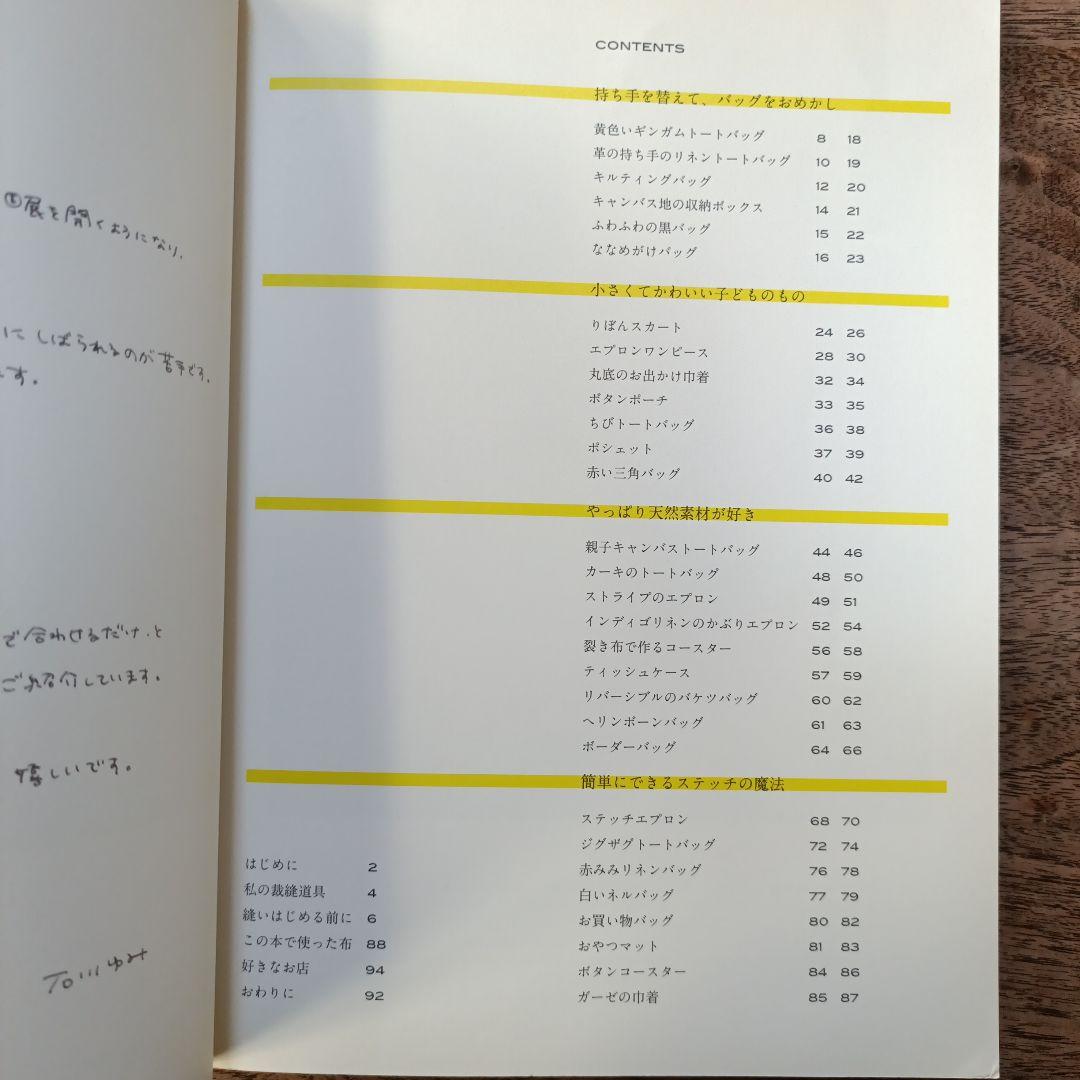 展を開くようになり、
にしばられるのが苦手です。
です。
で合わせるだけ、と
ご紹介しています。
嬉しいです。
石川ゆみ
CONTENTS
持ち手を替えて、バッグをおめかし
黄色いギンガムトートバッグ 8 18
革の持ち手のリネントートバッグ 10 19
キルティングバッグ 12 20
キャンバス地の収納ボックス 14 21
ふわふわの黒バッグ 15 22
ななめがけバッグ 16 23
小さくてかわいい子どものもの
りぼんスカート 24 26
エプロンワンピース 28 30
丸底のお出かけ巾着 32 34
ボタンポーチ 33 35
ちびトートバッグ 36 38
ポシェット 37 39
赤い三角バッグ 40 42
やっぱり天然素材が好き
親子キャンバストートバッグ 44 46
カーキのトートバッグ 48 50
ストライプのエプロン 49 51
インディゴリネンのかぶりエプロン 52 54
裂き布で作るコースター 56 58
ティッシュケース 57 59
リバーシブルのバケツバッグ 60 62
ヘリンボーンバッグ 61 63
ボーダーバッグ 64 66
簡単にできるステッチの魔法
ステッチエプロン 68 70
ジグザグトートバッグ 72 74
赤みみリネンバッグ 76 78
白いネルバッグ 77 79
お買い物バッグ 80 82
おやつマット 81 83
ボタンコースター 84 86
ガーゼの巾着 85 87
はじめに 2
私の裁縫道具 4
縫いはじめる前に 6
この本で使った布 88
好きなお店 94
おわりに 92